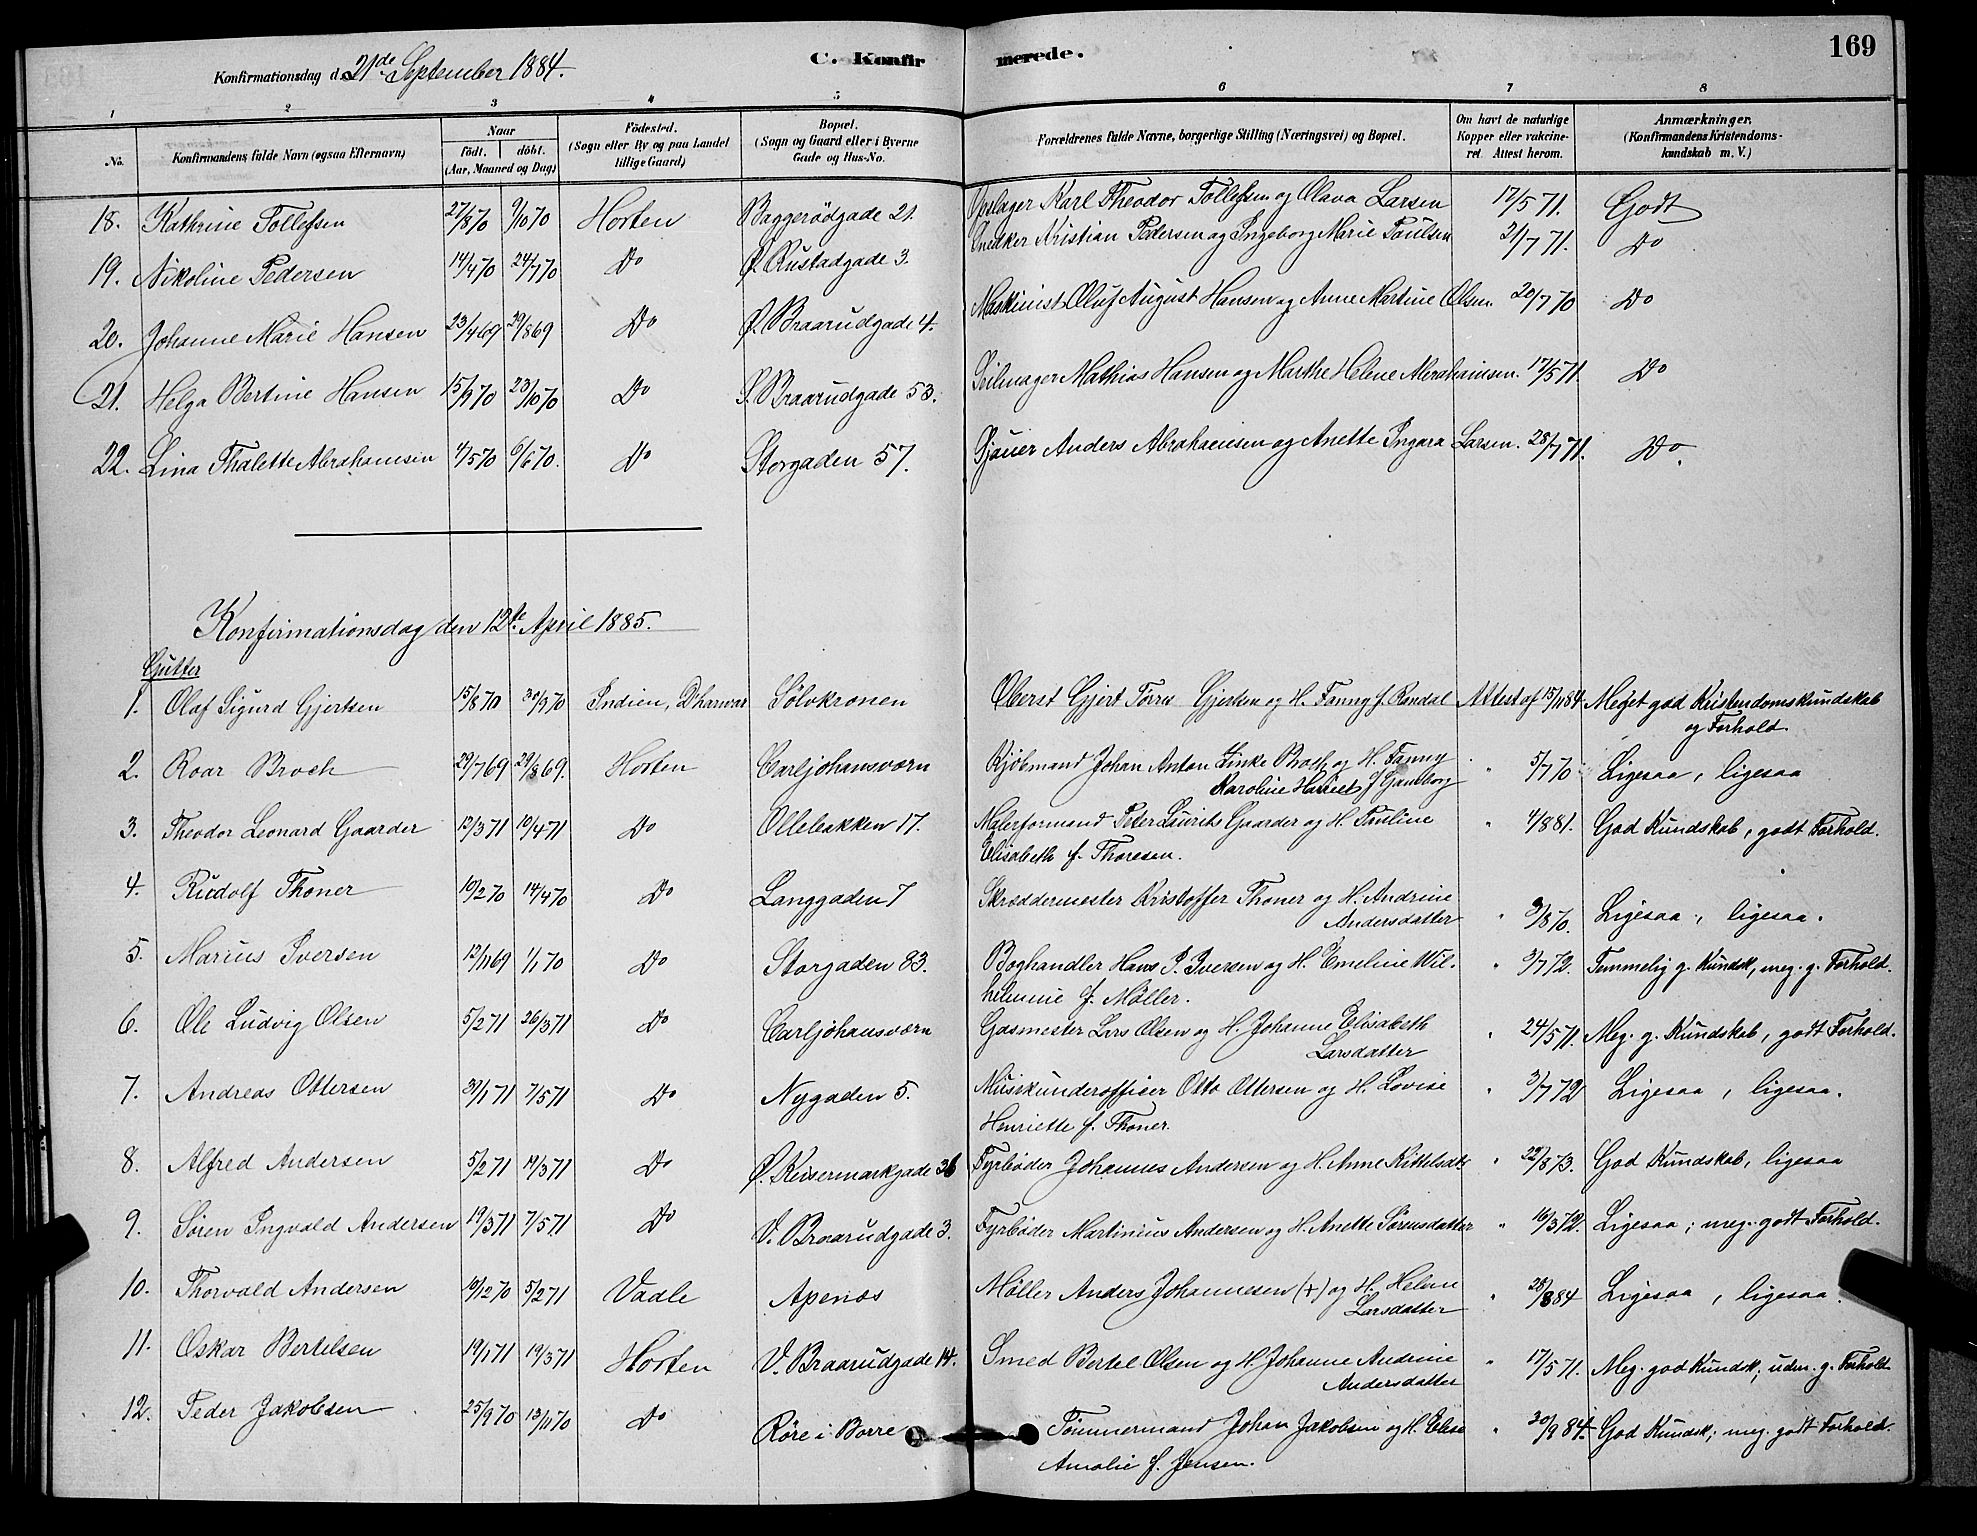 Konfirmationsdag d. 21de September 1884.
C. Konfirmerede.
169
1 2 3 4 5 6 7 8
No. Konfirmandens fulde Navn (ogsaa Efternavn) Naar födt. döbt. (Aar, Maaned og Dag) Födested. (Sogn eller By og paa Landet tillige Gaard) Bopæl. (Sogn og Gaard eller i Byerne Gade og Hus-No. Forældrenes fulde Navne, borgerlige Stilling (Næringsvei) og Bopæl. Om havt de naturlige Kopper eller vakcineret. Attest herom. Anmærkninger. (Konfirmandens Kristendomskundskab m. V.)
18. Kathrine Tollefsen 27/8 70 9/10 70 Horten Baggerødgade 21. Opslager Karl Theodor Tollefsen og Olava Larsen 17/5 71. Godt
19. Nikoline Pedersen 14/4 70 24/7 70 Do Ø. Rustadgade 3. Snedker Kristian Pedersen og Ingeborg Marie Paulsen 21/7 71. Do
20. Johanne Marie Hansen 23/4 69 29/8 69 Do Ø. Braarudgade 4. Maskinist Oluf August Hansen og Anne Martine Olsen. 20/7 70 Do
21. Helga Bertine Hansen 15/9 70 23/10 70 Do Ø. Braarudgade 53. Seilmager Mathias Hansen og Marthe Helene Abrahamsen. 17/5 71. Do
22. Lina Thalette Abrahamsen 4/5 70 6/6 70. Do Storgaden 57. Gjauer Anders Abrahamsen og Anette Ingara Larsen. 28/7 71. Do.
Konfirmationsdag den 12te April 1885.
Gutter
1. Olaf Sigurd Gjertsen 15/8 70 30/9 70 Indien, Dharwar Sølvkronen Oberst Gjert Torre Gjertsen og H. Fanny f. Randal Attest af 15/11 84 Meget god Kristendomskundskab
og Forhold.
2. Roar Broch 29/7 69 29/8 69. Horten Carljohansværn Kjøbmand Johan Anton Zinke Broch og H. Fanny " 5/7 70 Ligesaa, ligesaa
Karoline Hariet f Gamborg
3. Theodor Leonard Gaarder 12/3 71 10/4 71 Do Ollebakken 17. Malerformand Peter Laurits Gaarder og H. Pauline " 4/8 81. God Kundskab, godt Forhold.
Elisabeth f. Thoresen.
4. Rudolf Thoner 10/2 70 14/4 70 Do Langgaden 7 Skræddermester Kristoffer Thoner og H. Andrine
Andersdatter " 3/8 70. Ligesaa, ligesaa.
5. Marius Iversen 12/11 69 1/1 70 Do Storgaden 83. Boghandler Hans P. Iversen og H. Emeline Wil- " 3/7 72. Temmelig g. Kundsk, meg. g. Forhold.
helmine f. Møller.
6. Ole Ludvig Olsen 5/2 71 26/3 71 Do Carljohansværn Gasmester Lars Olsen og H. Johanne Elisabeth " 24/5 71. Meg. g. Kundskab, godt Forhold.
Larsdatter
7. Andreas Ottersen 31/1 71 7/5 71 Do Nygaden 5. Musikunderofficer Otto Ottersen og H. Lovise " 3/7 72 Ligesaa, ligesaa.
Henriette f. Thoner.
8. Alfred Andersen 5/2 71 19/3 71 Do Ø. Keisermarkgade 36 Fyrbøder Johannes Andersen og H. Anne Kittelsdtr " 22/8 73. God Kundskab, ligesaa
9. Søren Ingvald Andersen 19/3 71 7/5 71 Do V. Braarudgade 3. Fyrbøder Martinius Andersen og H. Anette Sørensdatter " 16/3 72. Ligesaa; meg. godt Forhold.
10. Thorvald Andersen 19/12 70 5/2 71 Vaale Apenæs Møller Anders Johannesen (+) og H. Helene " 28/8 84 Ligesaa, ligesaa.
Larsdatter
11. Oskar Bertelsen 19/1 71 19/3 71 Horten V. Braarudgade 14. Smed Bertel Olsen og H. Johanne Andrine " 17/5 71. Meg. god Kundsk; udm. g. Forhold
Andersdatter
12. Peder Jakobsen 25/9 70 13/11 70 Do Røre i Borre Tømmermand Johan Jakobsen og H. Elise " 30/9 84. God Kundsk; meg. godt Forhold.
Amalie f. Jensen.